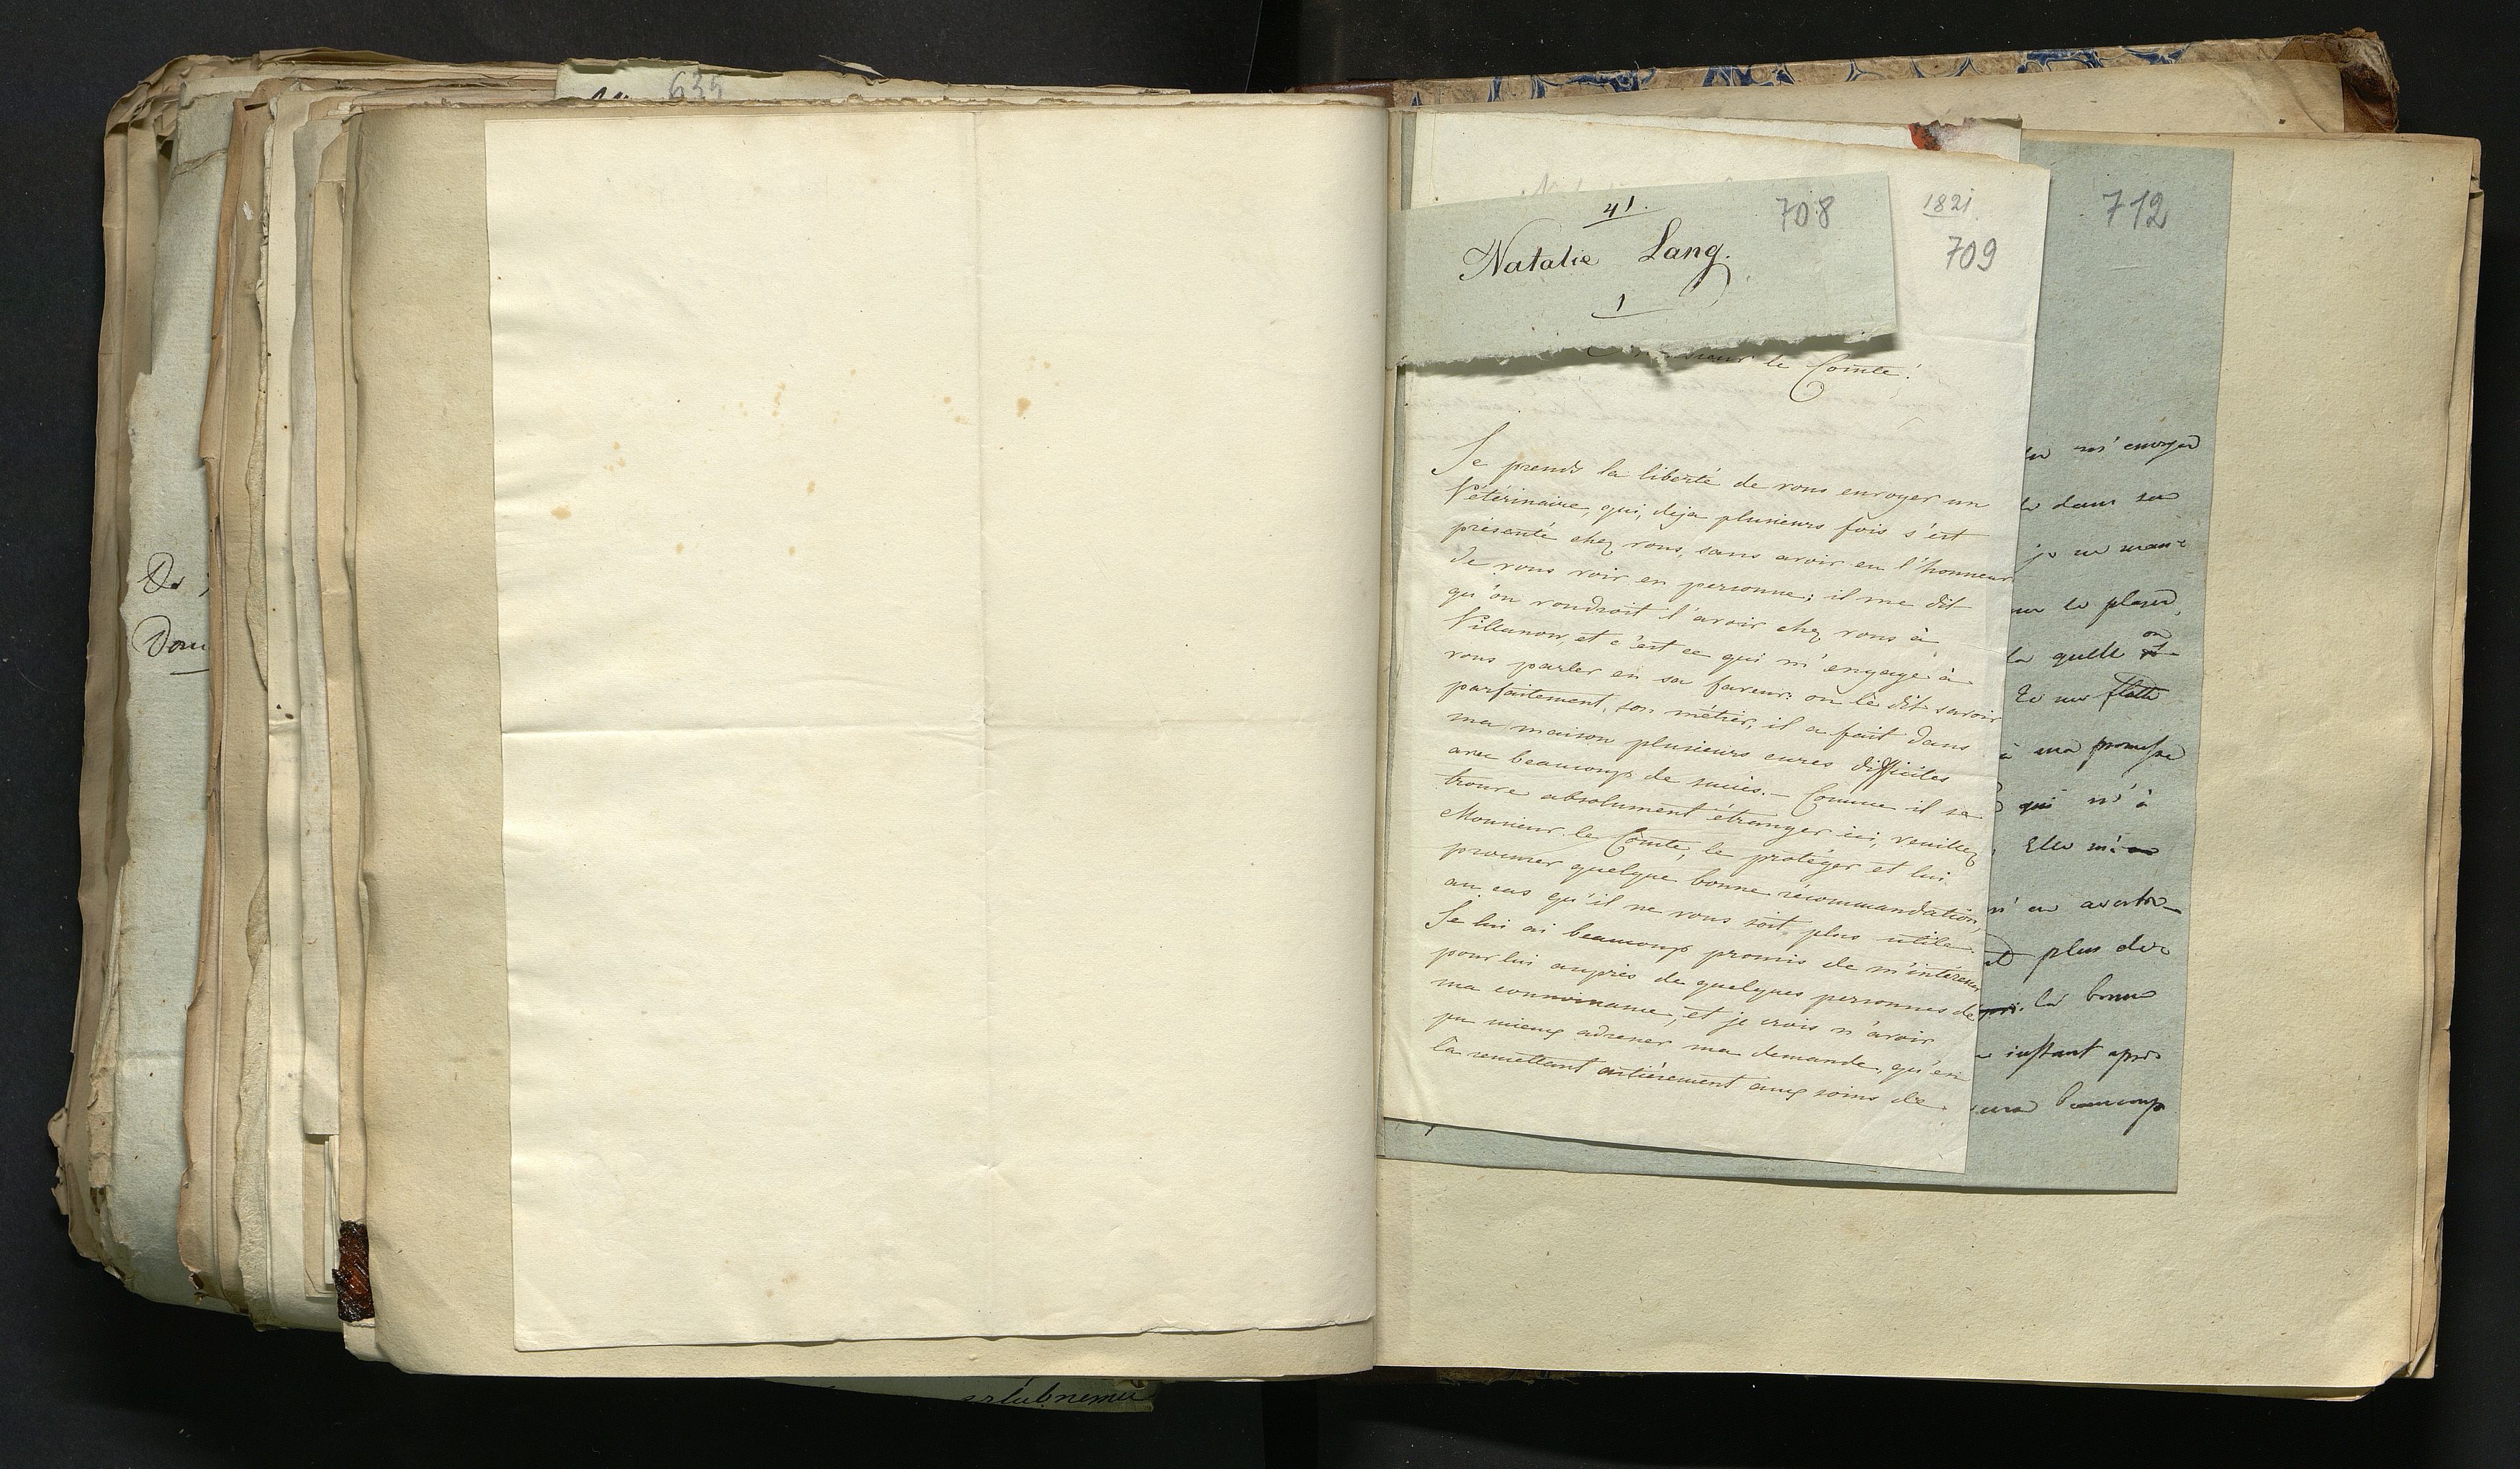 635
De
Dom
41.
Natalie Lang.
1
708
1821.
709
712
le Comte!
Je prends la liberté de vous envoyer un
Vétérinaire, qui, deja plusieurs fois s'est
présenté chez vous, sans avoir eu l'honneur
de vous voir en personne; il me dit
qu'on voudroit l'avoir chez vous à
Villanow, et c'est ce qui m'engage à
vous parler en sa faveur. on le dit savoir
parfaitement son métier, il a fait dans
ma maison plusieurs cures difficiles
avec beaucoup de succès. - Comme il se
trouve absolument étranger ici, veuillez
Monsieur le Comte, le protéger et lui
procurer quelque bonne récommandation,
au cas qu'il ne vous soit plus utile.
Je lui ai beaucoup promis de m'intéresser
pour lui auprès de quelques personnes de
ma connoissance, et je crois n'avoir
pu mieux adresser ma demande, qu'en
la remettant entièrement aux soins de
m'envoyer
dans sa
je ne man-
le plaisir,
la quelle on
me flatte
à ma promesse
qui n'a
Elle m'
m'en avertir
plus de
la bonne
instant après
beaucoup